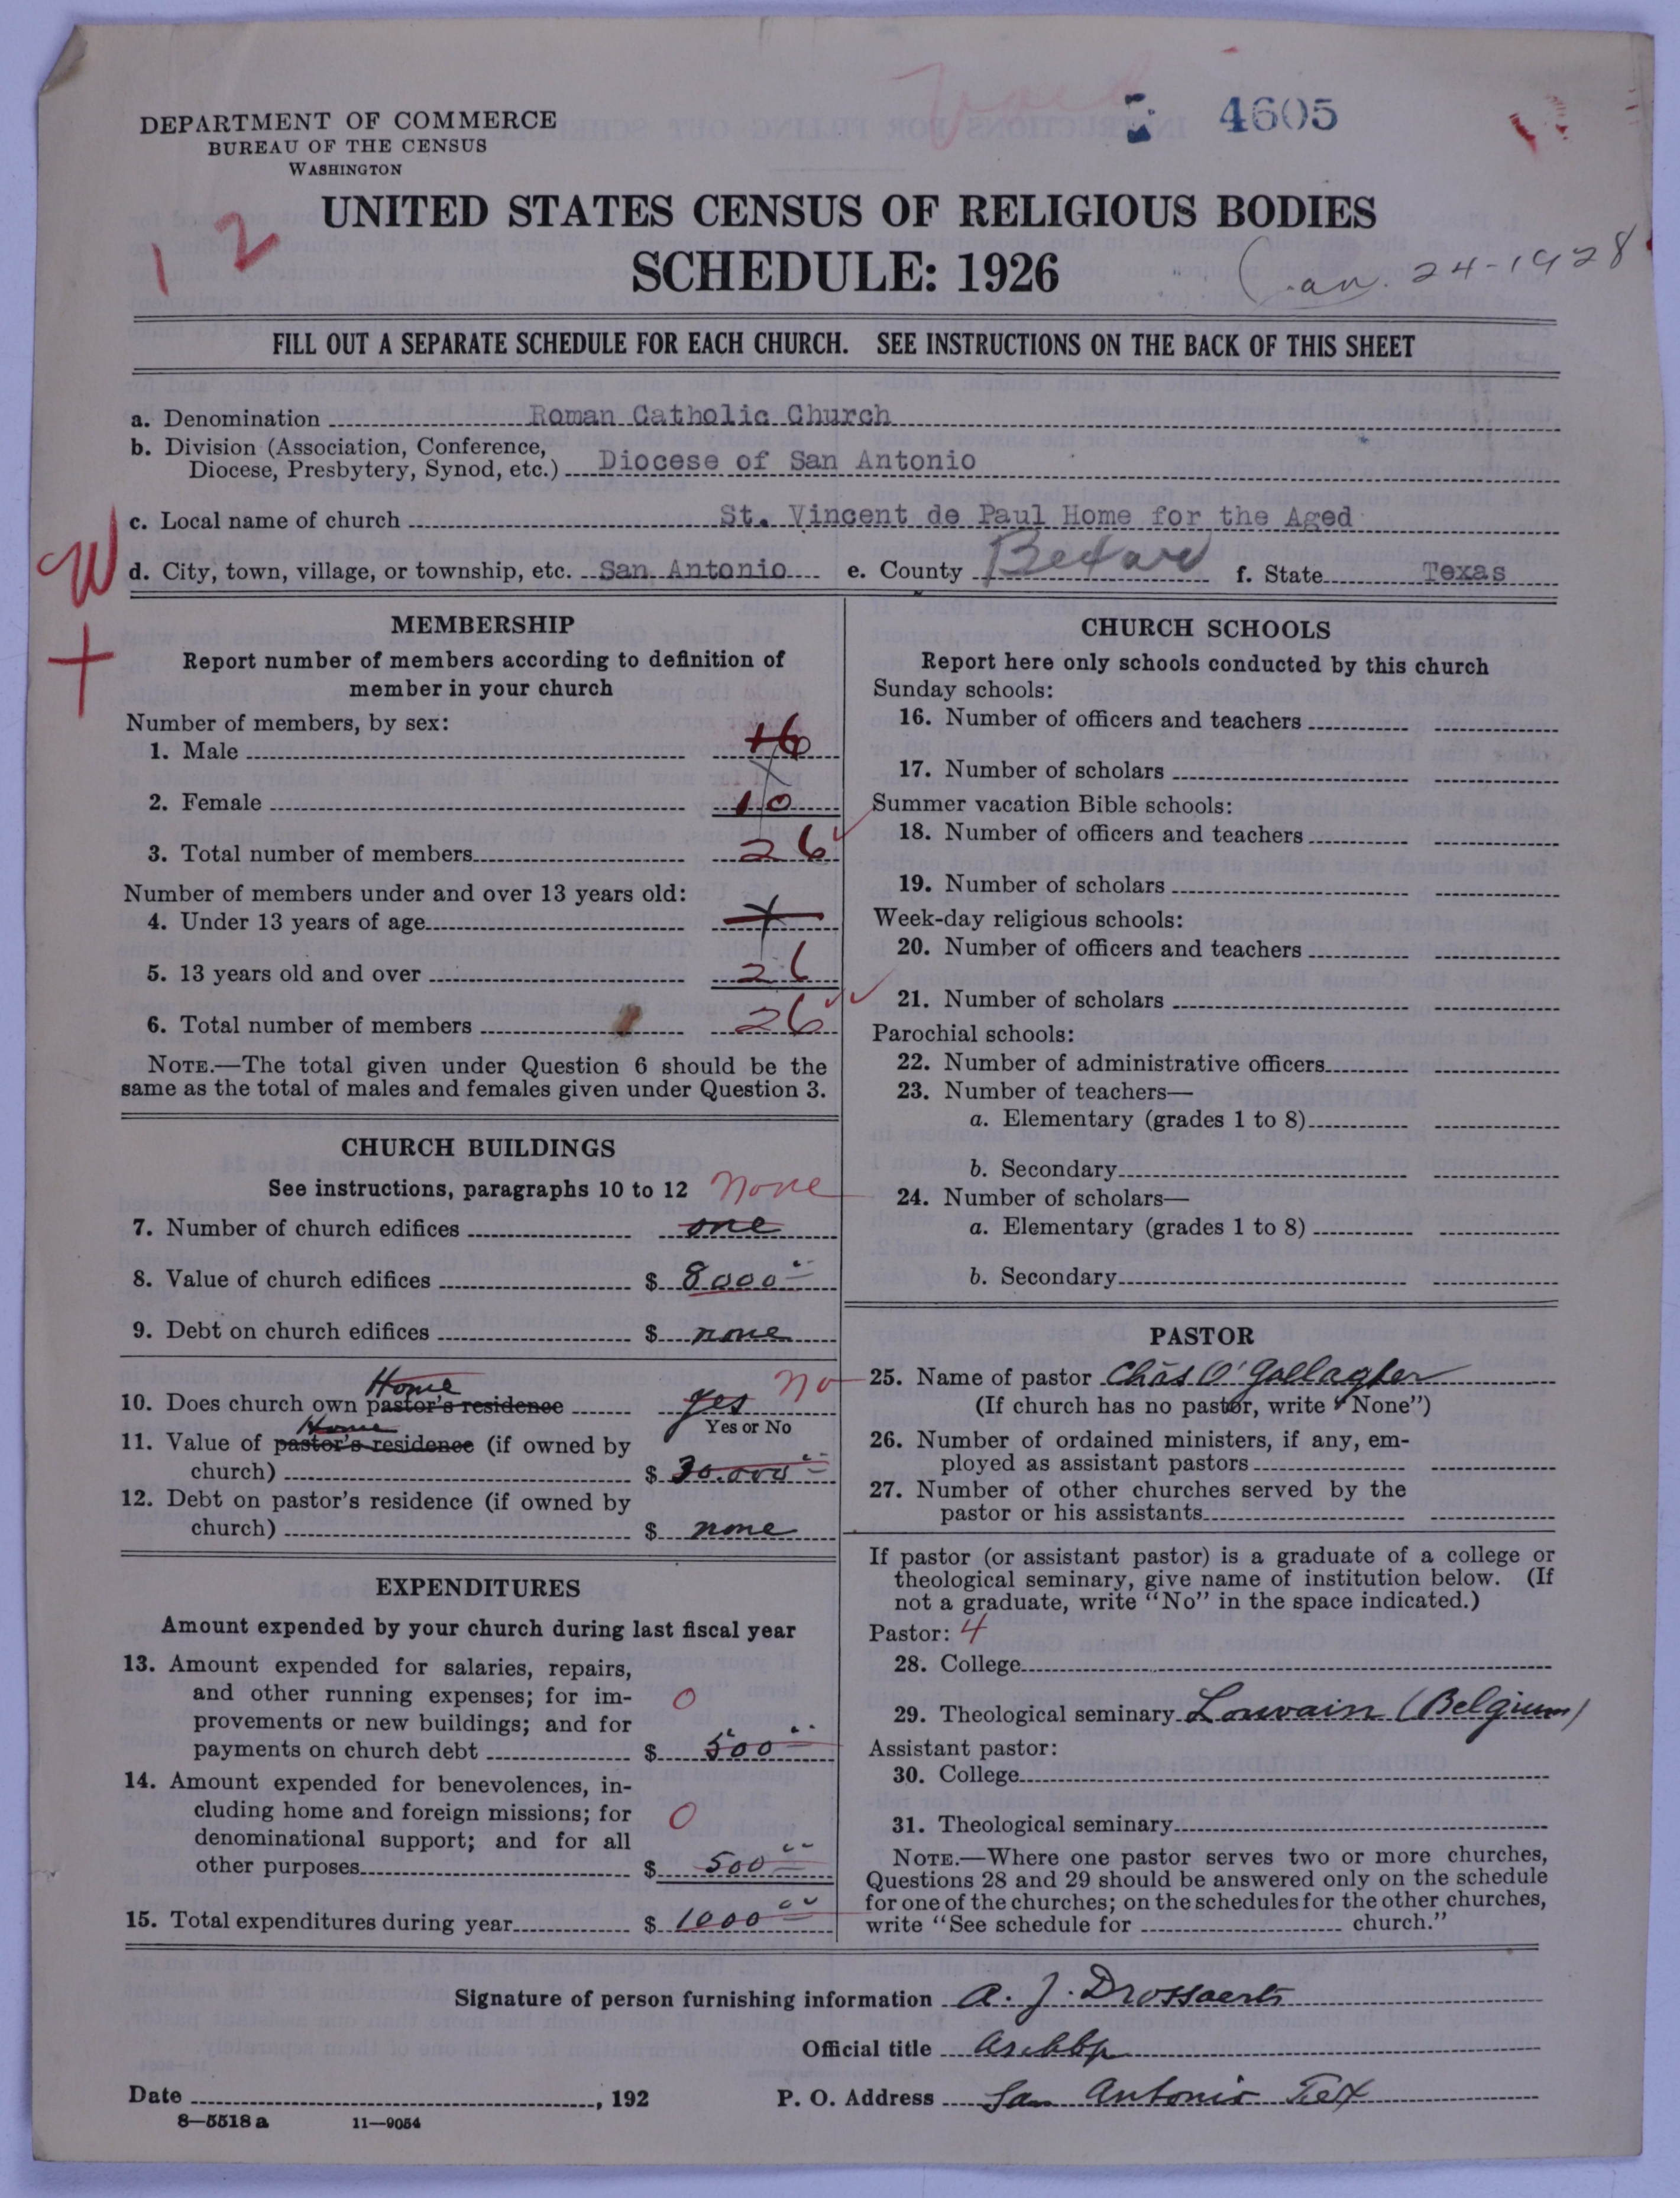 4605
DEPARTMENT OF COMMERCE
BUREAU OF THE CENSUS
WASHINGTON
UNITED STATES CENSUS OF RELIGIOUS BODIES
1 2
SCHEDULE: 1926
Jan. 24-1928
FILL OUT A SEPARATE SCHEDULE FOR EACH CHURCH. SEE INSTRUCTIONS ON THE BACK OF THIS SHEET
a. Denomination Roman Catholic Church
b. Division (Association, Conference,
Diocese, Presbytery, Synod, etc.) Diocese of San Antonio
c. Local name of church St. Vincent de Paul Home for the Aged
W
d. City, town, village, or township, etc. San Antonio e. County Bexar f. State Texas
MEMBERSHIP
Report number of members according to definition of
member in your church
Number of members, by sex:
1. Male 16
2. Female 10
3. Total number of members 26
Number of members under and over 13 years old:
4. Under 13 years of age
5. 13 years old and over 26
6. Total number of members 26
NOTE.—The total given under Question 6 should be the
same as the total of males and females given under Question 3.
CHURCH BUILDINGS
See instructions, paragraphs 10 to 12 none
7. Number of church edifices one
8. Value of church edifices $ 8000
9. Debt on church edifices $ none
Home
10. Does church own pastor's residence yes no
Yes or No
Home
11. Value of pastor's residence (if owned by
church) $ 30.000
12. Debt on pastor's residence (if owned by
church) $ none
EXPENDITURES
Amount expended by your church during last fiscal year
13. Amount expended for salaries, repairs,
and other running expenses; for im- 0
provements or new buildings; and for
payments on church debt $ 500
14. Amount expended for benevolences, in-
cluding home and foreign missions; for 0
denominational support; and for all
other purposes $ 500
15. Total expenditures during year $ 1000
CHURCH SCHOOLS
Report here only schools conducted by this church
Sunday schools:
16. Number of officers and teachers
17. Number of scholars
Summer vacation Bible schools:
18. Number of officers and teachers
19. Number of scholars
Week-day religious schools:
20. Number of officers and teachers
21. Number of scholars
Parochial schools:
22. Number of administrative officers
23. Number of teachers—
a. Elementary (grades 1 to 8)
b. Secondary
24. Number of scholars—
a. Elementary (grades 1 to 8)
b. Secondary
PASTOR
25. Name of pastor Chas O'Gallagher
(If church has no pastor, write "None")
26. Number of ordained ministers, if any, em-
ployed as assistant pastors
27. Number of other churches served by the
pastor or his assistants
If pastor (or assistant pastor) is a graduate of a college or
theological seminary, give name of institution below. (If
not a graduate, write "No" in the space indicated.)
Pastor: 4
28. College
29. Theological seminary Louvain (Belgium)
Assistant pastor:
30. College
31. Theological seminary
NOTE.—Where one pastor serves two or more churches,
Questions 28 and 29 should be answered only on the schedule
for one of the churches; on the schedules for the other churches,
write "See schedule for church."
Signature of person furnishing information A. J. Drossaerts
Official title Archbp
Date , 192 P. O. Address San Antonio Tex
8—5518 a 11—9054